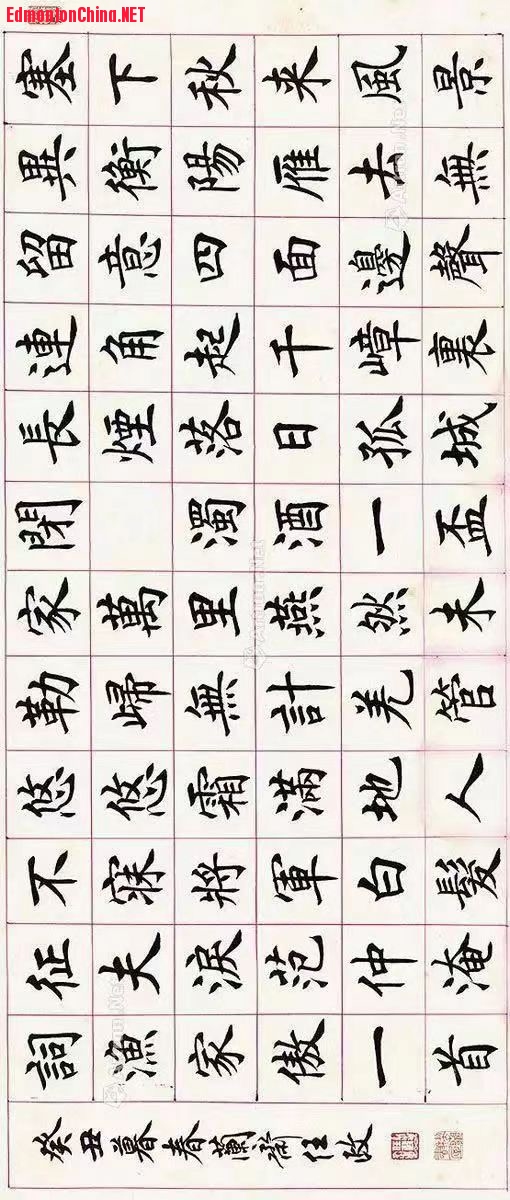 EdmontonChina.NET
塞下秋来風景
異衡陽雁去無
留意四面邊聲
連角起千嶂裏
長煙落日孤城
閉 濁酒一盃
家萬里燕然未
勒歸無計羌管
悠悠霜滿地人
不寐將軍白髮
征夫淚范仲淹
詞漁家傲一首
癸丑暮春蘭齋任政